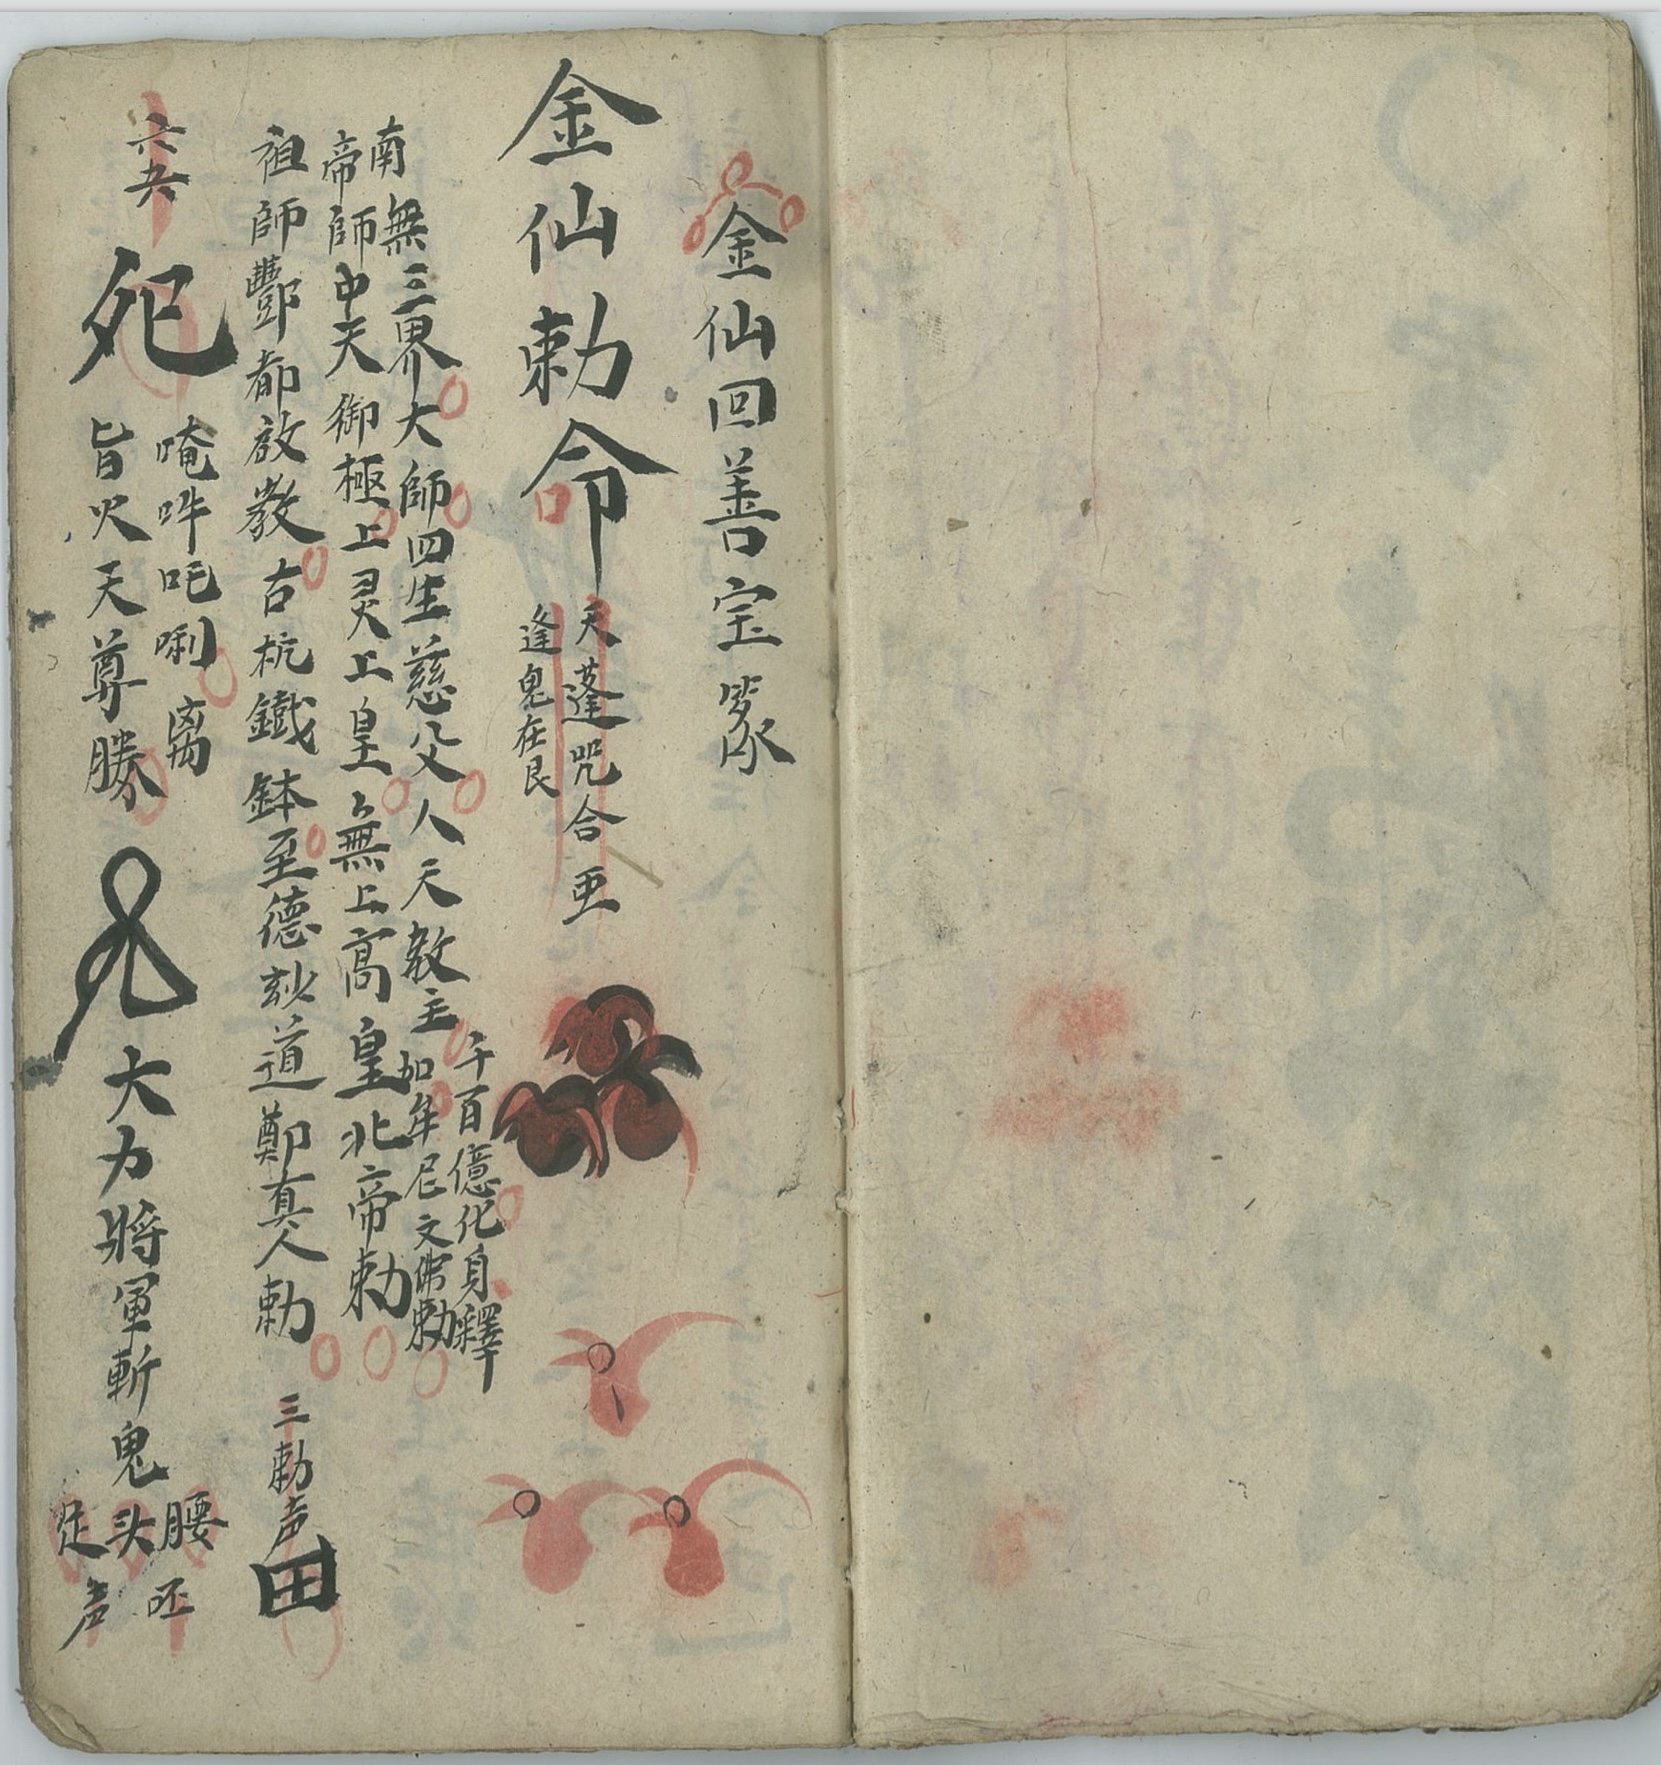 金仙回善宝篆
金仙勅命
天蓬咒合
逢鬼在艮
南無三界大師四生慈父人天教主
千百億化身釋
加牟尼文佛勅
帝師中天御極上灵上皇無上高皇北帝勅
祖師酆都啟教古杭鐵鉢至德玅道鄭真人勅
三勅声
田
六
唵吽吒唎
离
旨火天尊勝
大力將軍斬鬼
腰
头
声